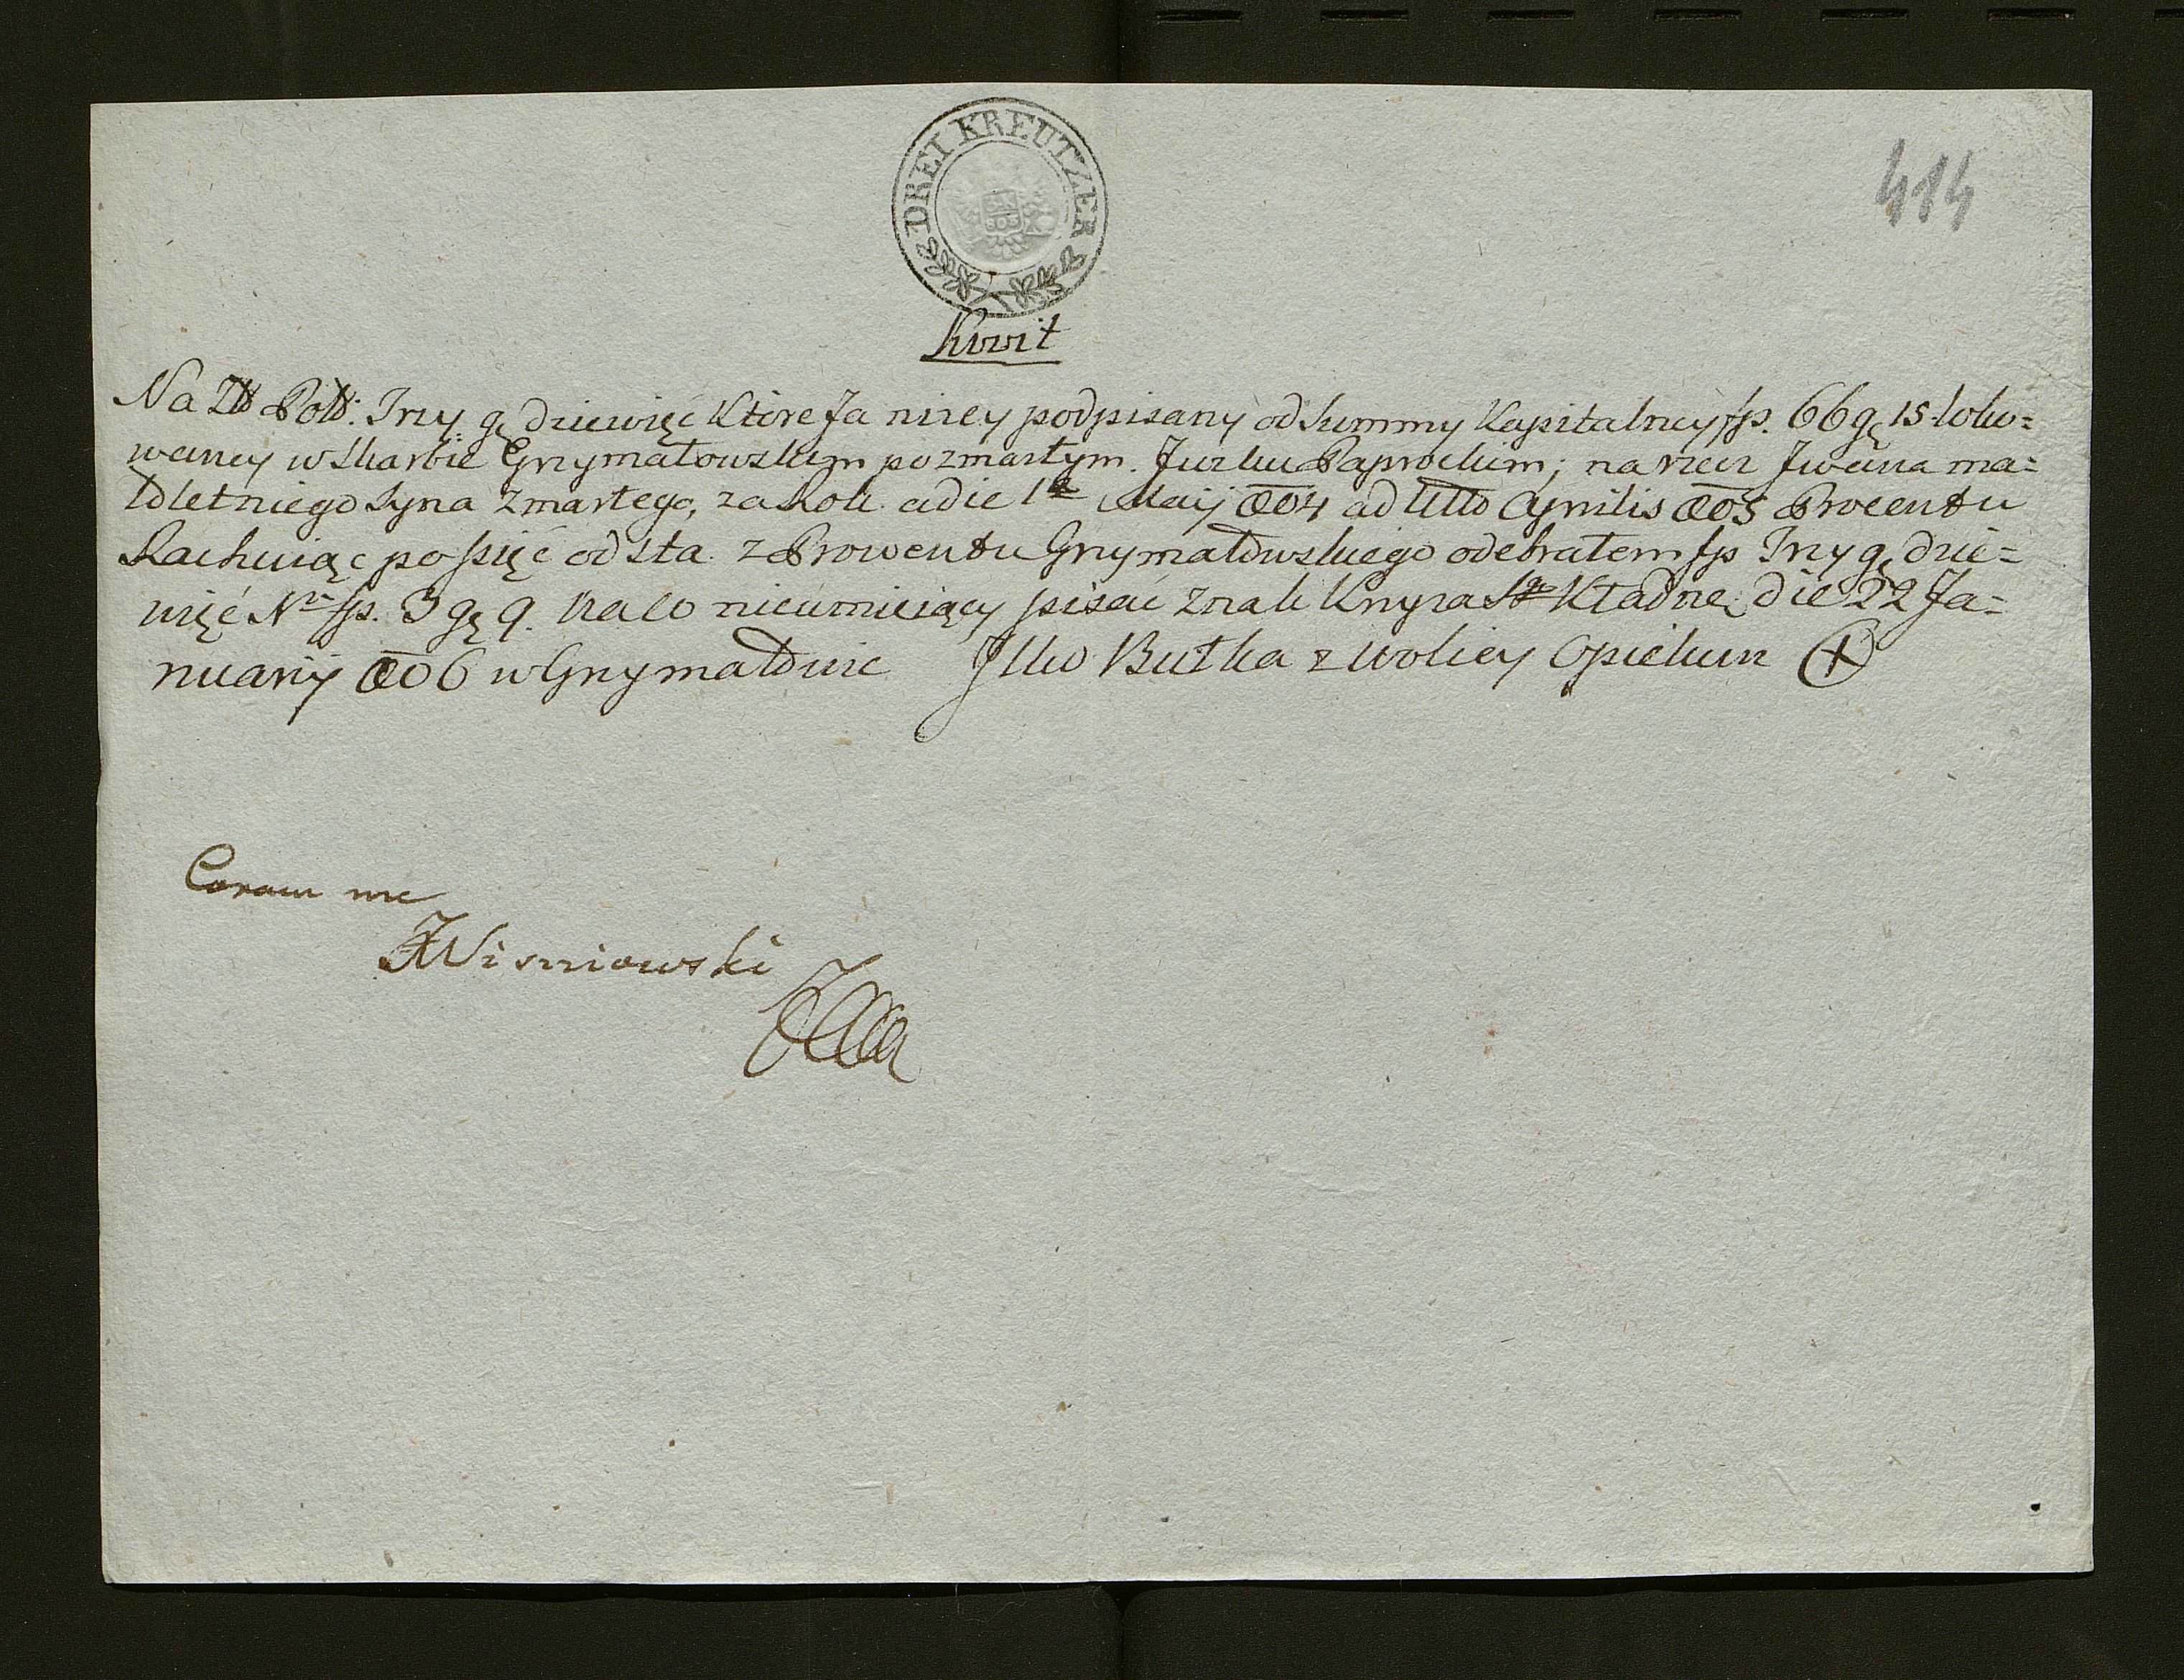 DREI KREUTZER
414
Kwit
Na Złł Polł: Trzy gę dziewięć które Ja niżey podpisany od Summy Kapitalney fp. 66 gę 15 loko=
waney w Skarbie Grzymałowskim po zmarłym Jurku Paprockim; na rzecz Jwana ma=
łoletniego Syna Zmarłego, za Rok a die 1ª Maij 804 ad Ultō Aprilis 805 Procentu
Rachuiąc po pięć od sta z Prowentu Grzymałowskiego odebrałem fp Trzy gę dzie=
więć Nº fp. 3 gę 9. na co nieumieiący pisać Znak Krzyża Sgo Kładnę die 22 Ja=
nuarij 806 w Grzymałowie Ilko Butka z Wolicy Opiekun +
Coram me
JWisniowski